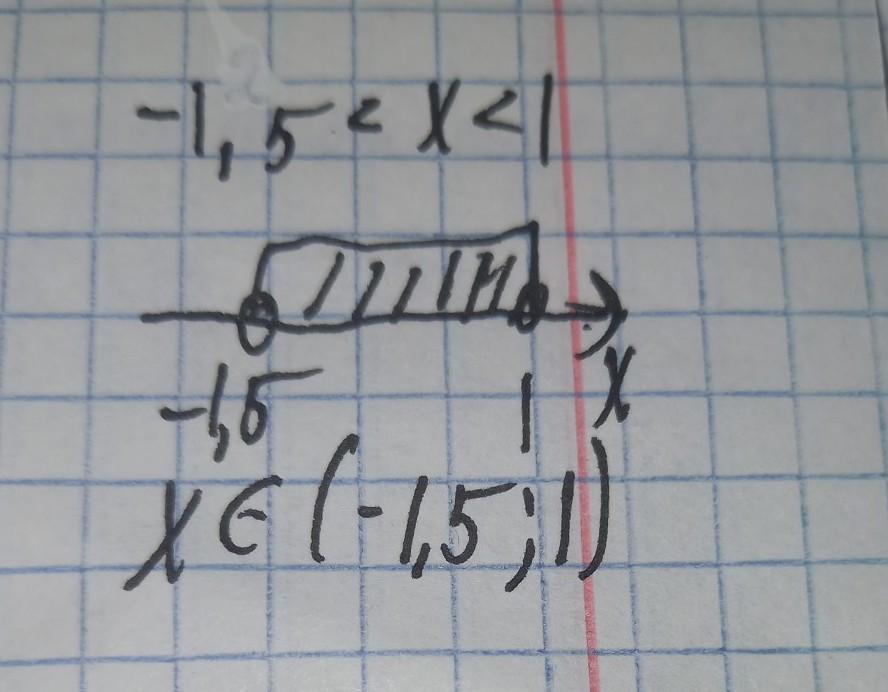 -1,5 < x < 1
-1,5 1 x
x ∈ (-1,5; 1)